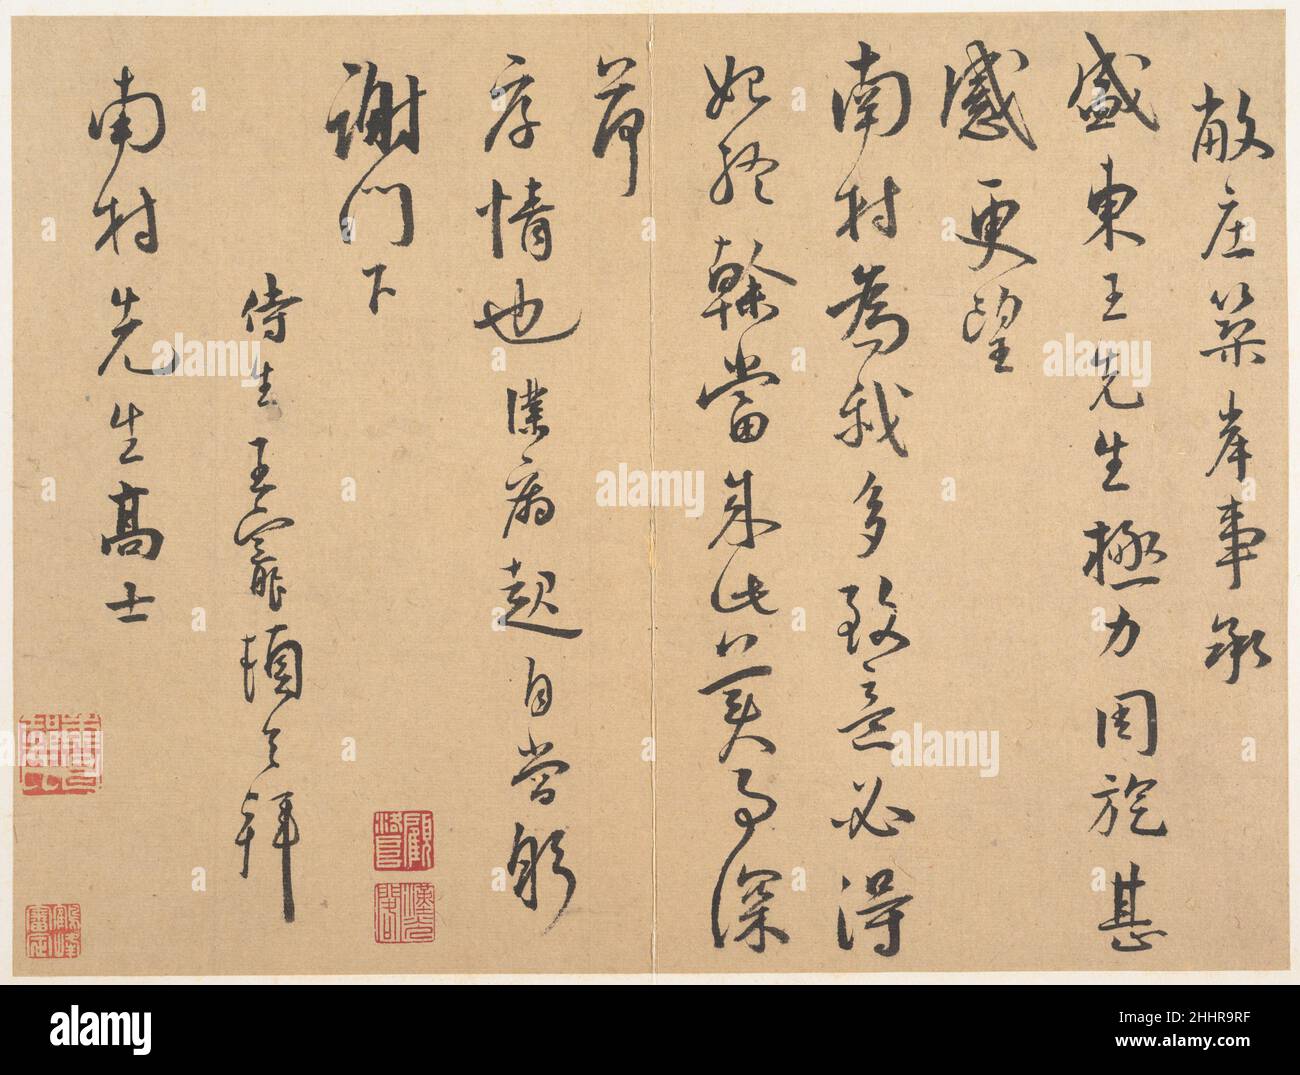 敝庄築岸事承
盛東王先生極力周旋甚
感更望
南村為我多致意必得
始終幹當成此美事深
荷
厚情也僕病起自當躬
謝門下
侍生王寵頓首拜
南村先生高士
alamy
Image ID: 2HHR9RF
www.alamy.com